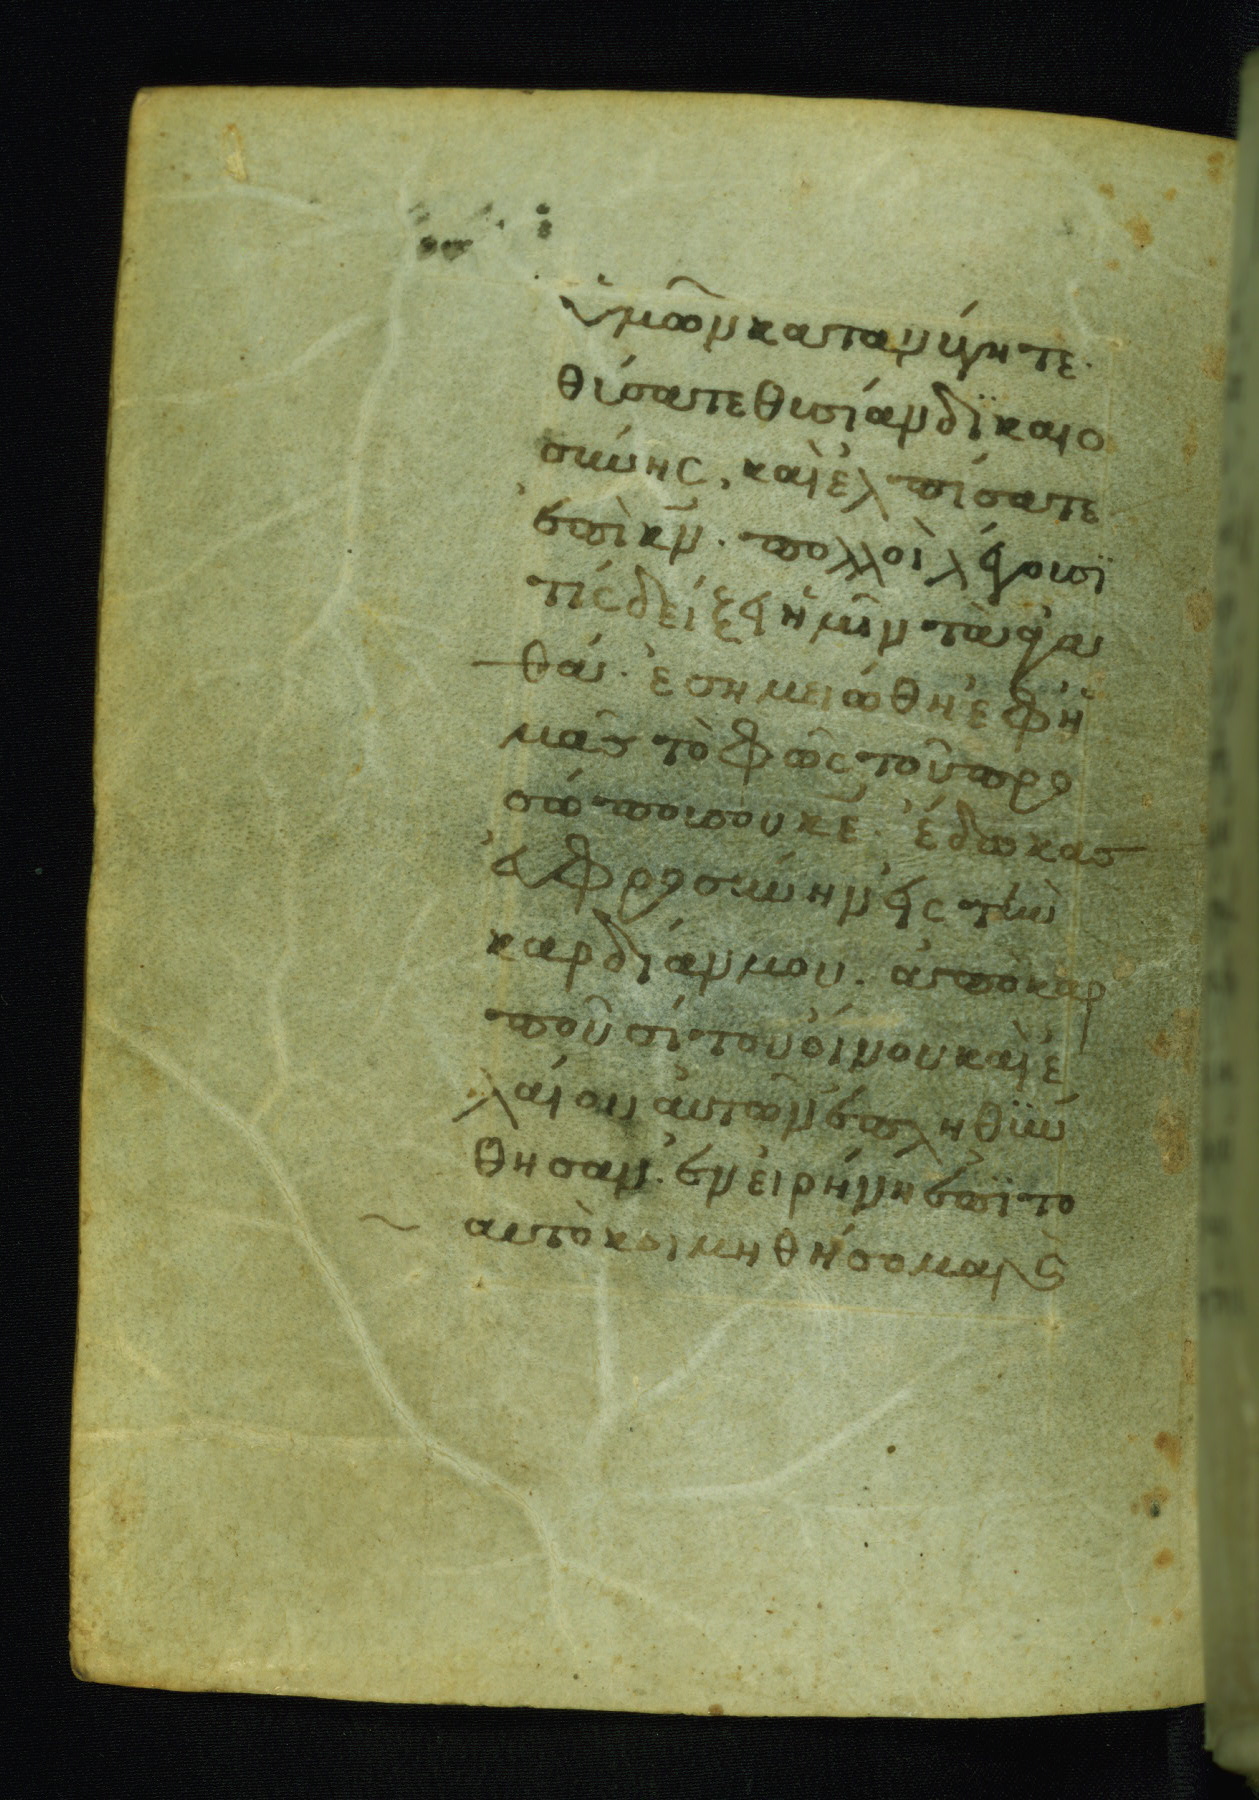 ὑμῶν κατανύγητε·
θύσατε θυσίαν δϊκαιο
σύνης, καὶ ἐλπίσατε
ἐπὶ κν̄· πολλοὶ λέγουσϊ
τίς δείξει ἡμῖν τὰ ἀγα
θά· ἐσημειώθη ἐφ ἡ
μᾶς τὸ φῶς τοῦ προ
σώπου σου κε̄· ἔδωκας
εὐφροσύνην εἰς τὴν
καρδίαν μου· ἀπὸ καρ
ποῦ σίτου οἴνου καὶ ἐ
λαίου αὐτῶν ἐπληθϋν
θησαν· ἐν εἰρήνη ἐπϊ το
αυτὸ κοιμηθήσομαι